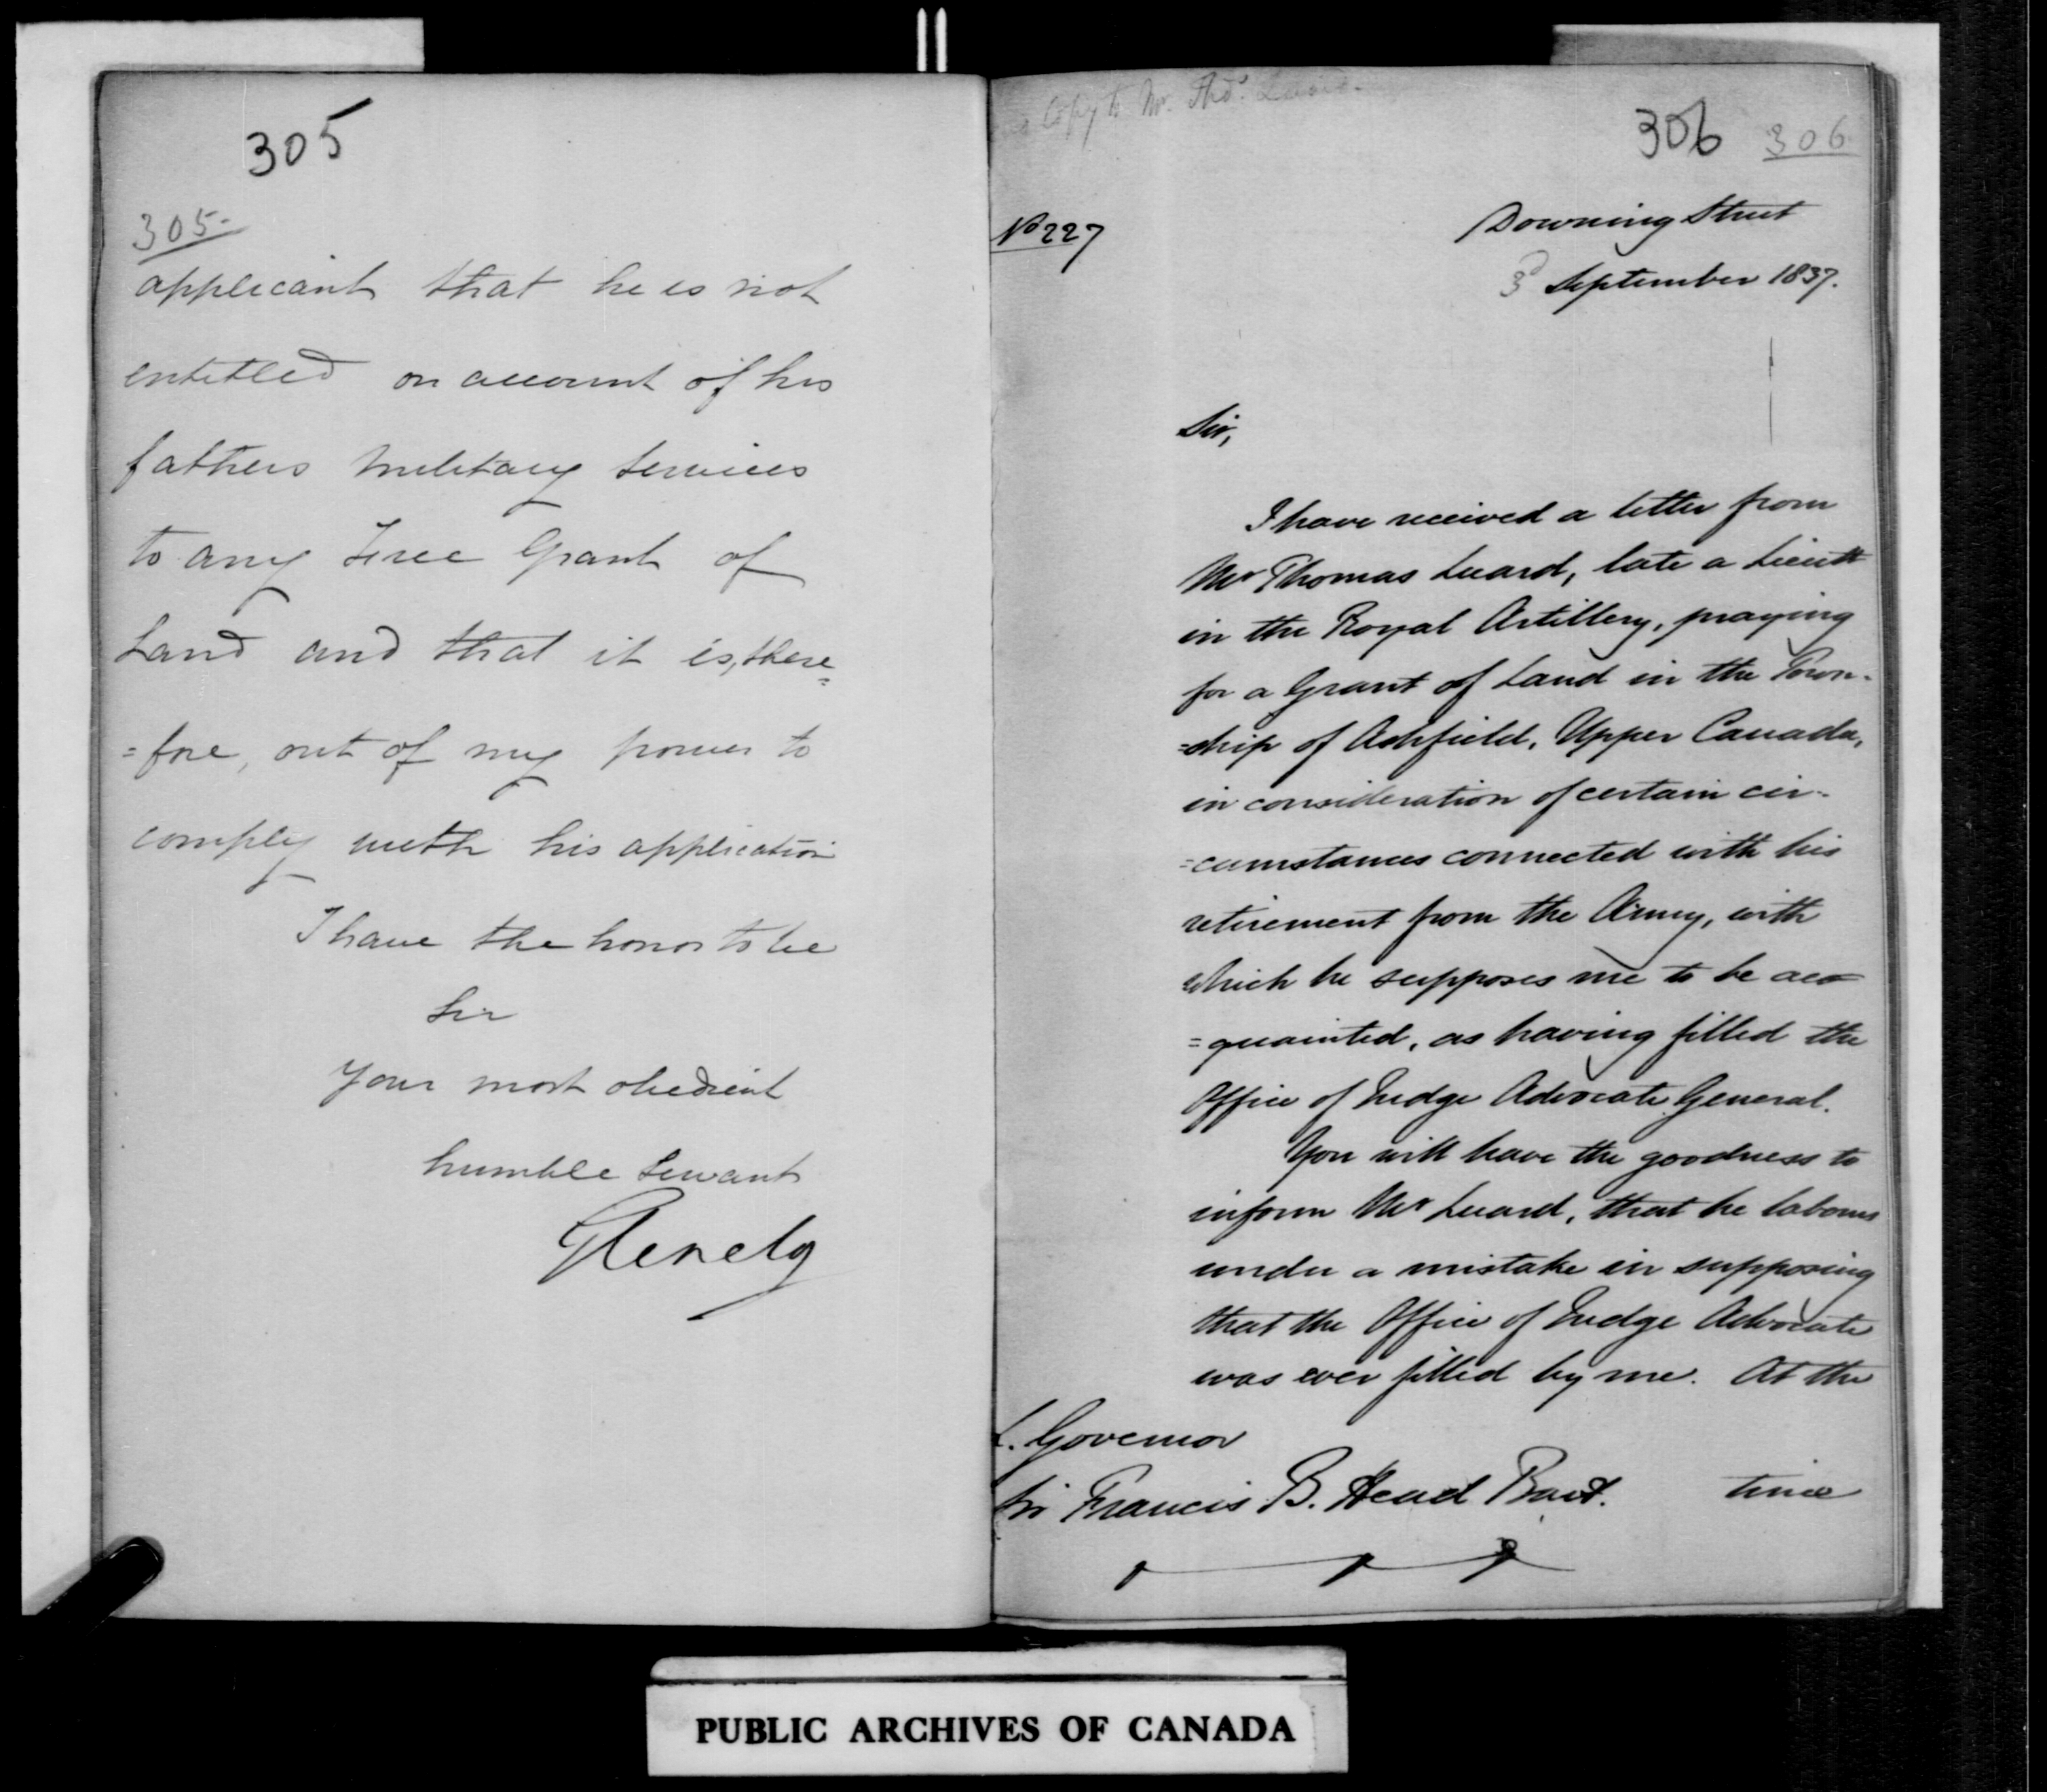 305
305-
applicant that he is not
entitled on account of his
fathers Military Services
to any Free Grant of
Land and that it is, there
=fore, out of my power to
comply with his application
I have the honor to be
Sir
Your most obedient
humble Servant
Glenelg
Copy to Mr. Thos.
306 306
No 227
Downing Street
3d September 1837.
Sir,
I have received a letter from
Mr Thomas Luard, late a Lieutt
in the Royal Artillery, praying
for a Grant of Land in the Town-
=ship of Ashfield, Upper Canada,
in consideration of certain cir-
=cumstances connected with his
retirement from the Army, with
which he supposes me to be ac-
=quainted, as having filled the
Office of Judge Advocate General.
You will have the goodness to
inform Mr Luard, that he labours
under a mistake in supposing
that the Office of Judge Advocate
was ever filled by me. At the
L. Governor
Sir Francis B. Head Bart.
time
PUBLIC ARCHIVES OF CANADA